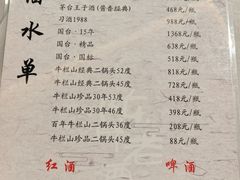 酒水单
茅台王子酒(酱香经典) 468元/瓶
习酒1988 988元/瓶
国台·15年 1368元/瓶
国台·精品 638元/瓶
国台·国标 518元/瓶
牛栏山经典二锅头52度 218元/瓶
牛栏山经典二锅头45度 728元/瓶
牛栏山珍品30年53度 418元/瓶
牛栏山珍品30年46度 398元/瓶
百年牛栏山二锅头36度 208元/瓶
牛栏山珍品二锅头45度 88元/瓶
红酒 啤酒